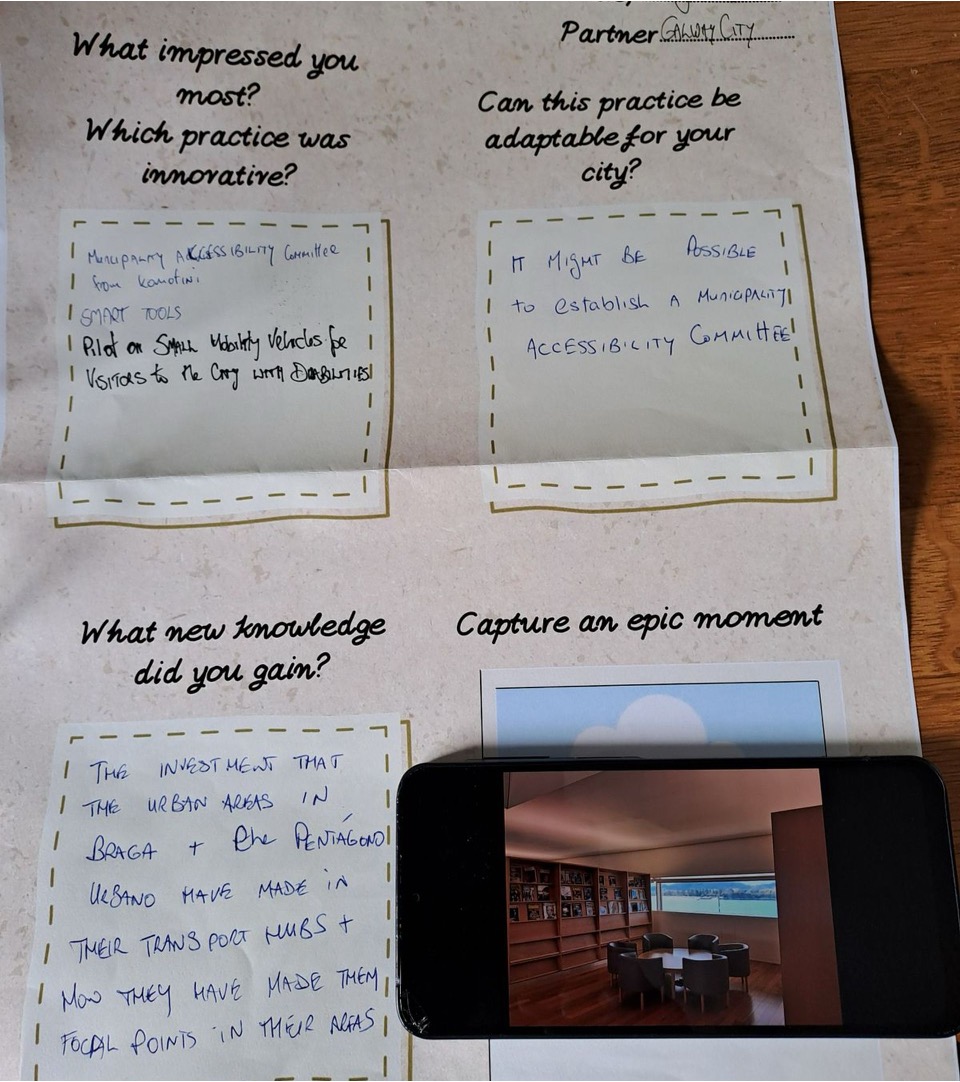 Partner GALWAY CITY
What impressed you
most?
Which practice was
innovative?
MUNICIPALITY ACCESSIBILITY COMMITTEE
from Komotini
SMART TOOLS
Pilot on SMALL Mobility Vehicles for
VISITORS to the City WITH DISABILITIES
Can this practice be
adaptable for your
city?
IT MIGHT BE POSSIBLE
to establish A MUNICIPALITY
ACCESSIBILITY COMMITTEE
What new knowledge
did you gain?
THE INVESTMENT THAT
THE URBAN AREAS IN
BRAGA + the PENTÁGONO
URBANO HAVE MADE IN
THEIR TRANSPORT HUBS +
HOW THEY HAVE MADE THEM
FOCAL POINTS IN THEIR AREAS
Capture an epic moment